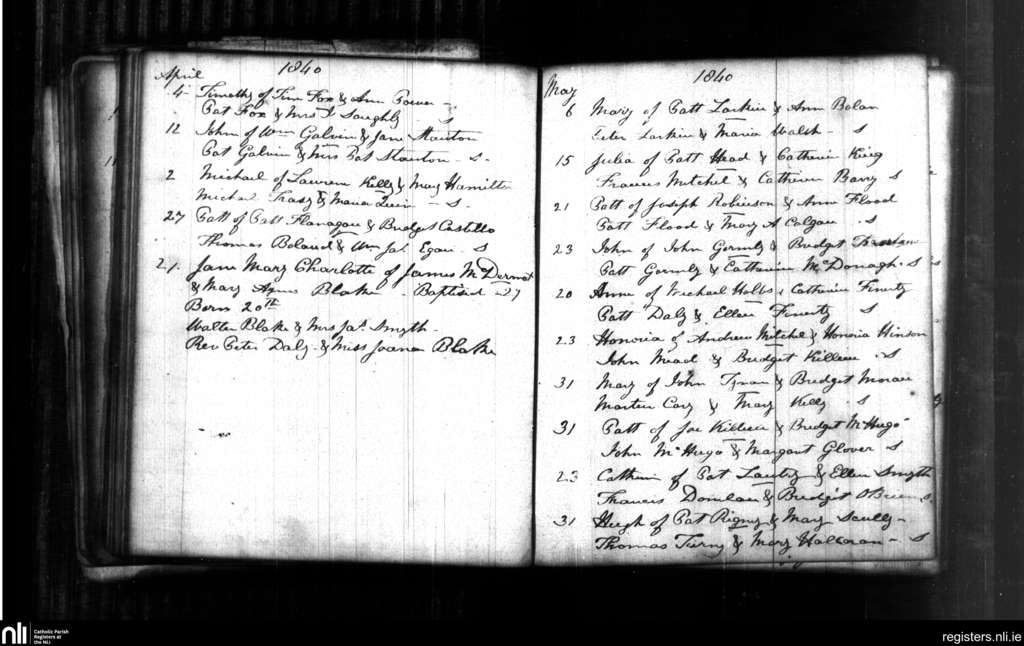 April 1840
4 Timothy of Tim Fox & Ann Power -
Pat Fox & Mrs S
12 John of Wm Galvin & Jane Stanton
Pat Galvin & Mrs Pat Stanton - S -
2 Michael of Lawrence Kelly & Mary Hamilton
Michael & Maria - S -
27 Patt of Patt Flanagan & Bridget Costello
Thomas Boland & Wm Jas Egan - S
21. Jane Mary Charlotte of James McDermot
& Mary Agnes Blake - Baptised 27
Born 20th
Walter Blake & Mrs Jas Smyth -
Rev Peter Daly - & Miss Joana Blake
May 1840
6 Mary of Patt Larkin & Ann Bolan
Peter Larkin & Maria Walsh - S
15 Julia of Patt Head & Catherin King
Frances Mitchel & Catherin Barry S
21 Patt of Joseph Robinson & Ann Flood
Patt Flood & Mary A Colgan . S
23 John of John Gormly & Bridget
Patt Gormly & Catherin McDonagh . S
20 Anne of Michael & Catherin Finerty
Patt Daly & Ellen Finerty S
23 Honoria of Andrew Mitchel & Honoria
John Mead & Bridget Killeen . S
31 Mary of John & Bridget Moran
Martin & Mary Kelly . S
31 Patt of Joe Killeen & Bridget McHugo
John McHugo & Margaret Glover S
23 Catherin of Pat & Ellen Smyth
Francis & Bridget OBrien S
31 Hugh of Pat & Mary Scully -
Thomas & Mary Halloran - S
nli Catholic Parish
Registers at
the NLI
registers.nli.ie